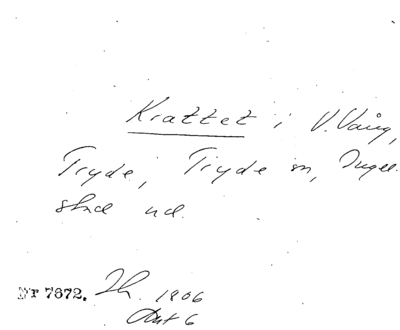 Krattet i V. Vång,
Tryde, Tryde sn, Ingel-
stad hd.
Nr 7672. Lh. 1806
Akt 6